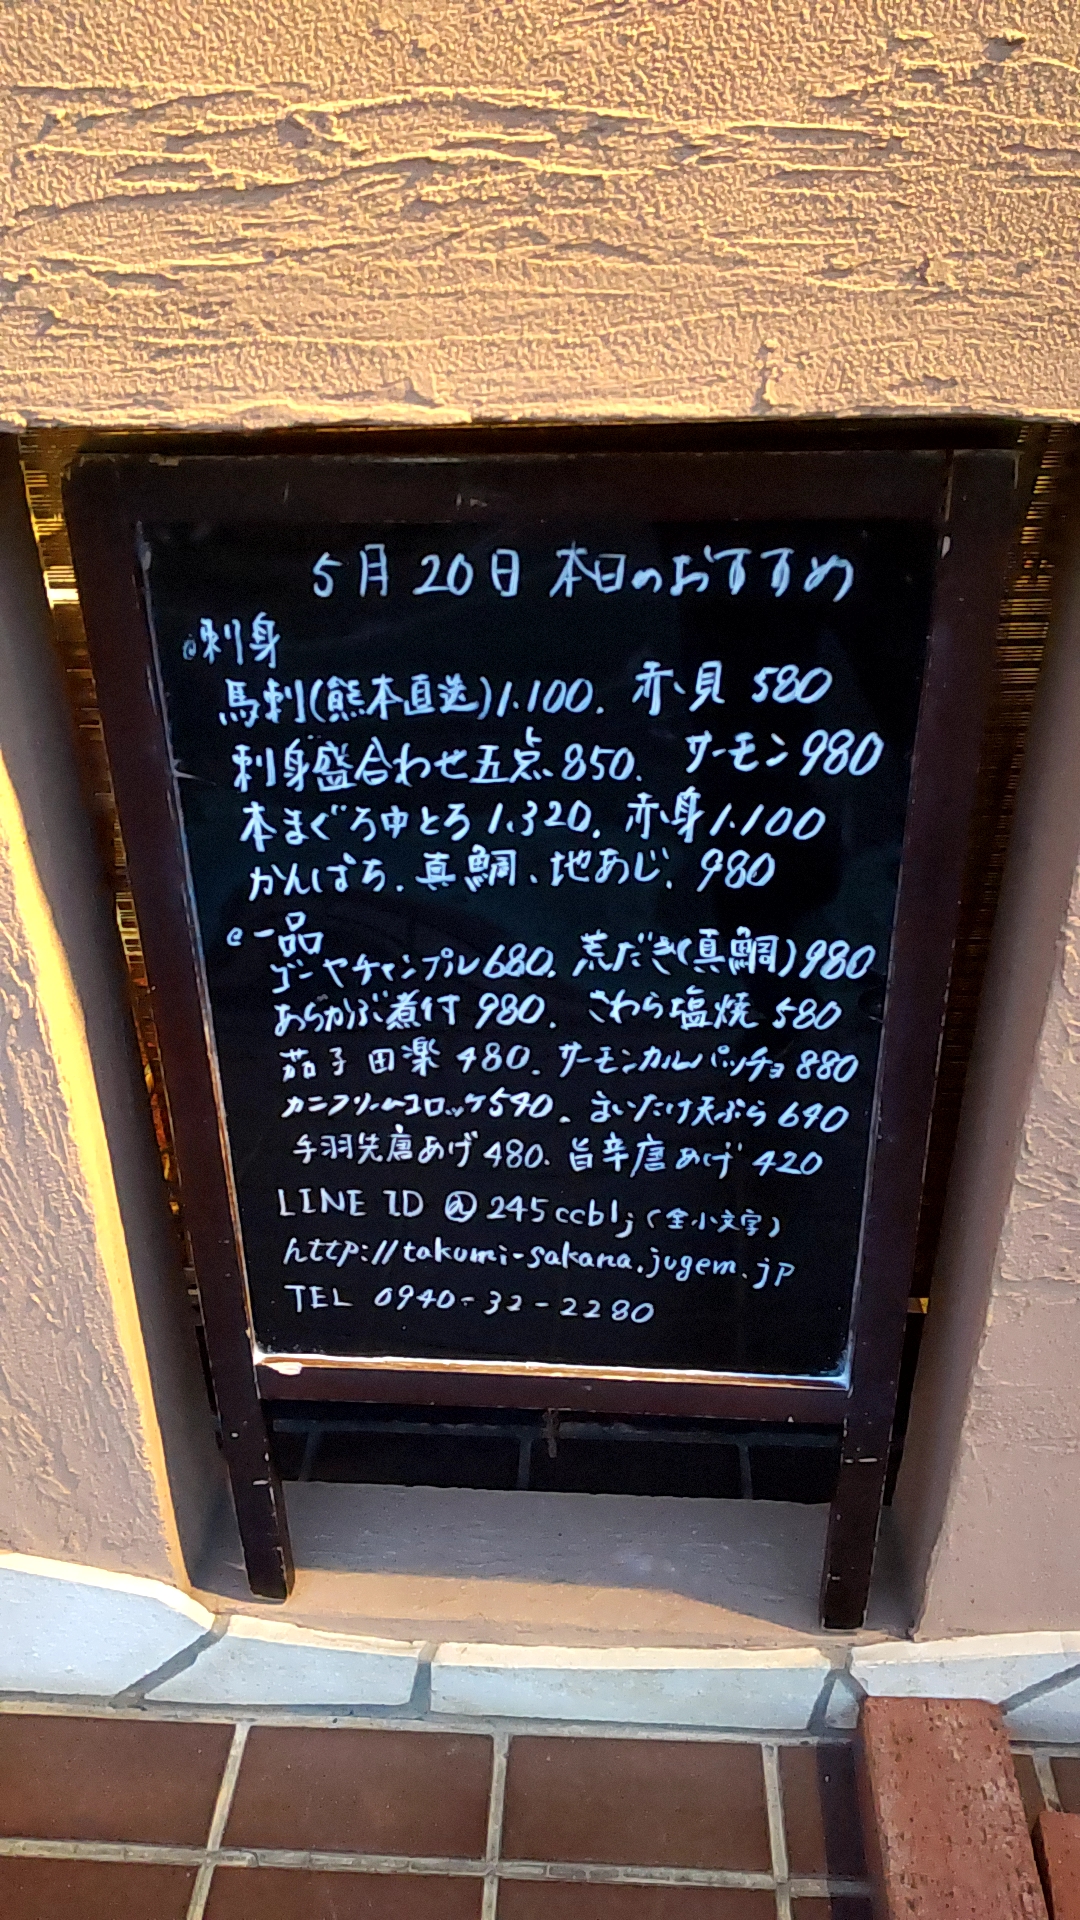 5月20日 本日のおすすめ
@刺身
馬刺(熊本直送)1.100. 赤貝 580
刺身盛合わせ五点.850. サーモン980
本まぐろ中とろ 1.320. 赤身1.100
かんぱち.真鯛、地あじ. 980
@一品
ゴーヤチャンプル680. 荒だき(真鯛)980
あらかぶ煮付 980. さわら塩焼 580
茄子田楽 480. サーモンカルパッチョ 880
カニクリームコロッケ540. まいたけ天ぷら 640
手羽先唐あげ 480. 旨辛唐あげ 420
LINE ID @245ccblj(全小文字)
http://takumi-sakana.jugem.jp
TEL 0940-32-2280